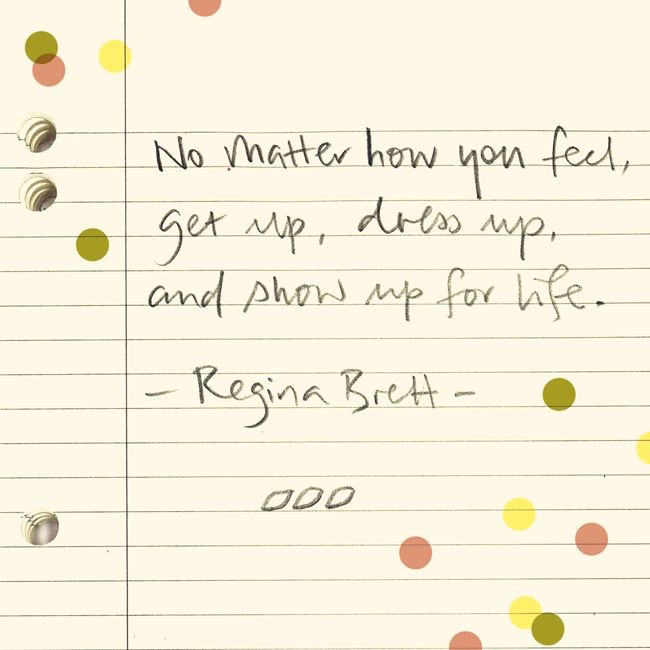 No matter how you feel,
get up, dress up,
and show up for life.
- Regina Brett -